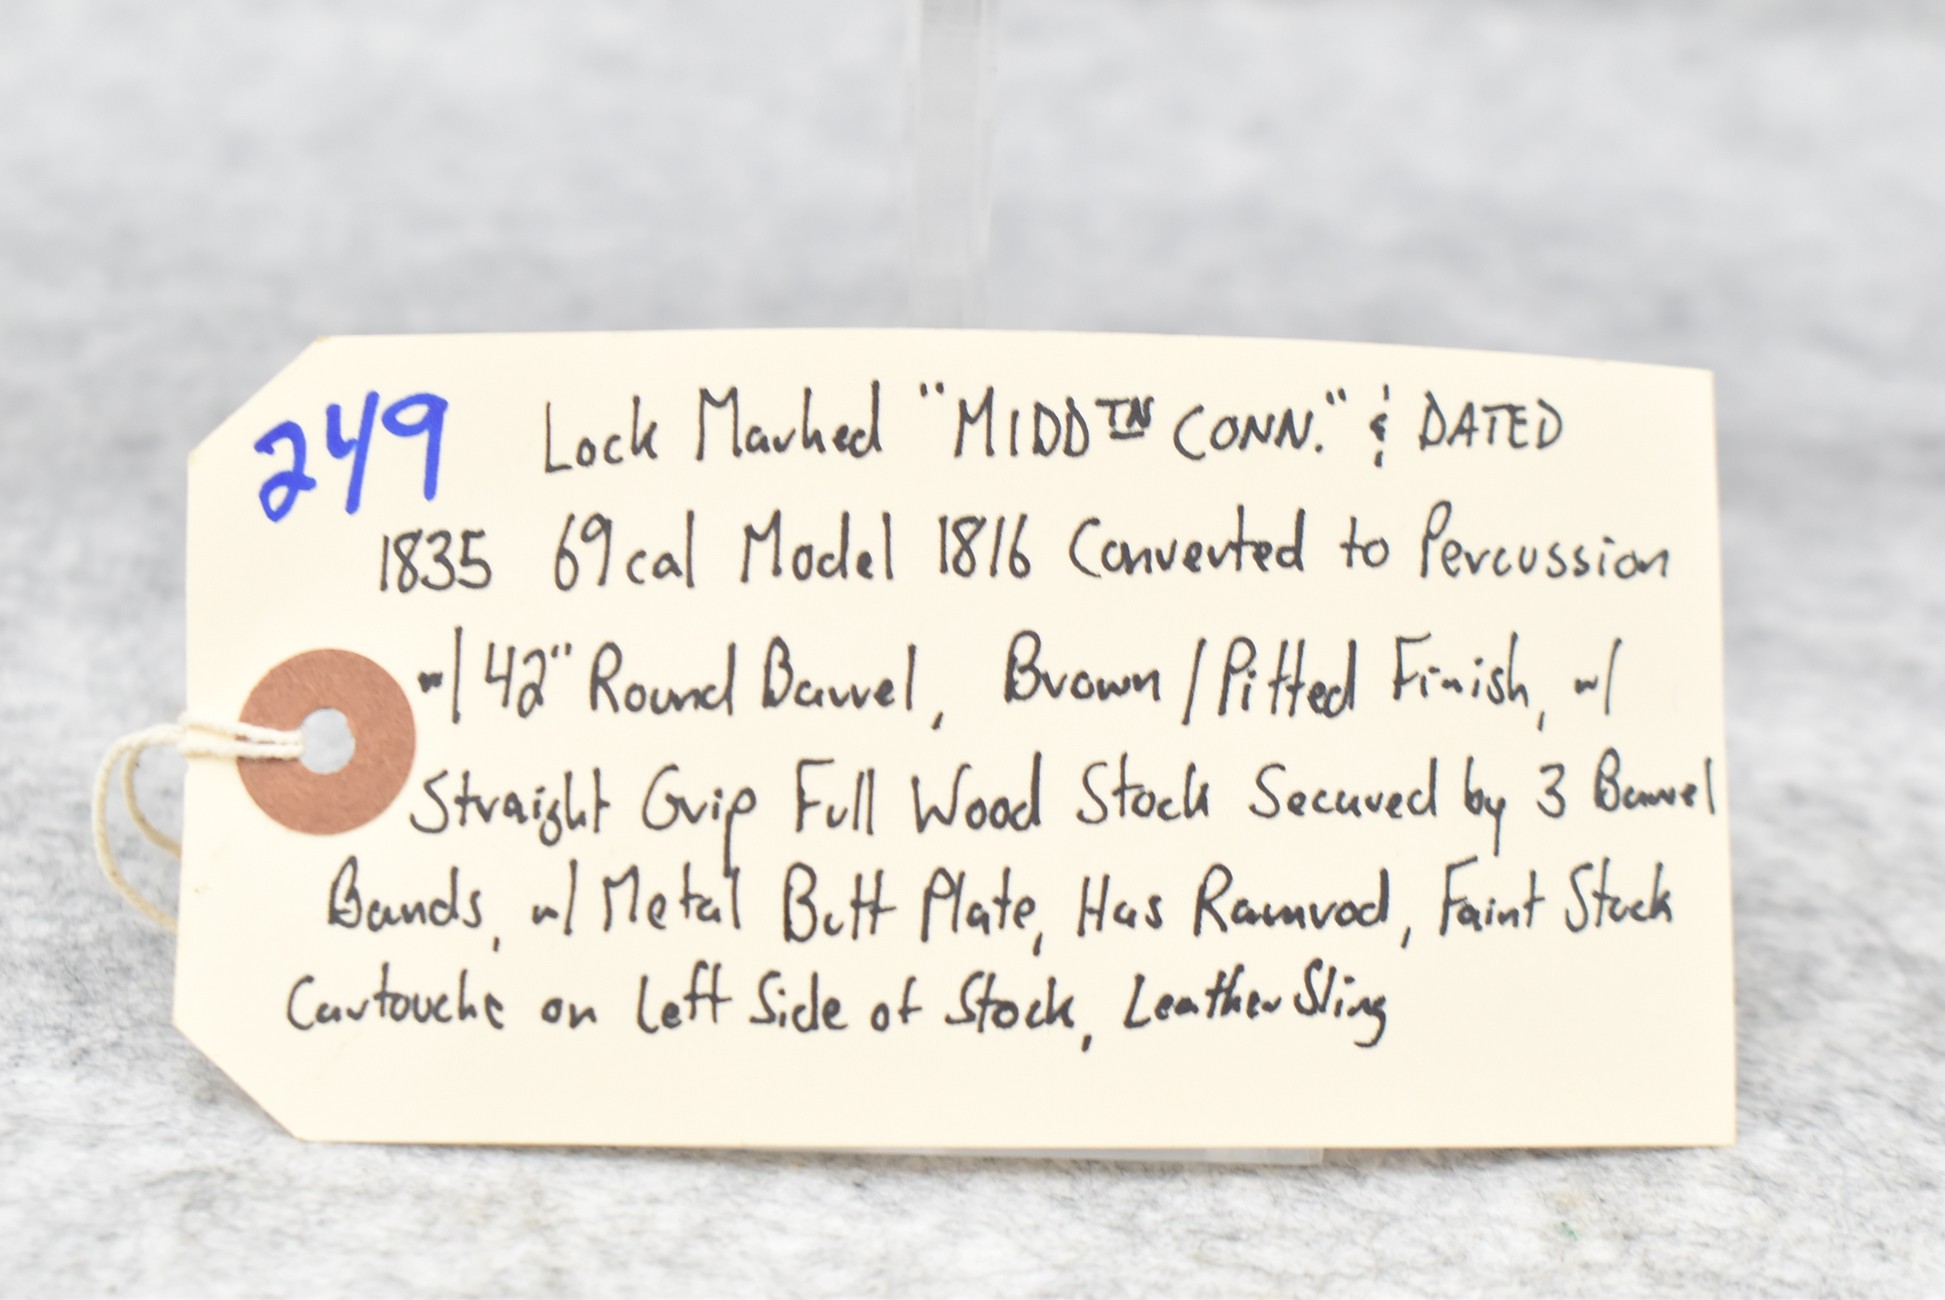 249 Lock Marked "MIDDTN CONN." & DATED
1835 69cal Model 1816 Converted to Percussion
w/ 42" Round Barrel, Brown/Pitted Finish, w/
Straight Grip Full Wood Stock Secured by 3 Barrel
Bands, w/ Metal Butt Plate, Has Ramrod, Faint Stock
Cartouche on Left Side of Stock, Leather Sling